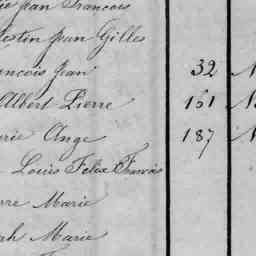 Jean François
Jean Gilles
ançois Jean 32
Albert Pierre 161
arie Ange 187
Louis Felix François
rre Marie
ph Marie